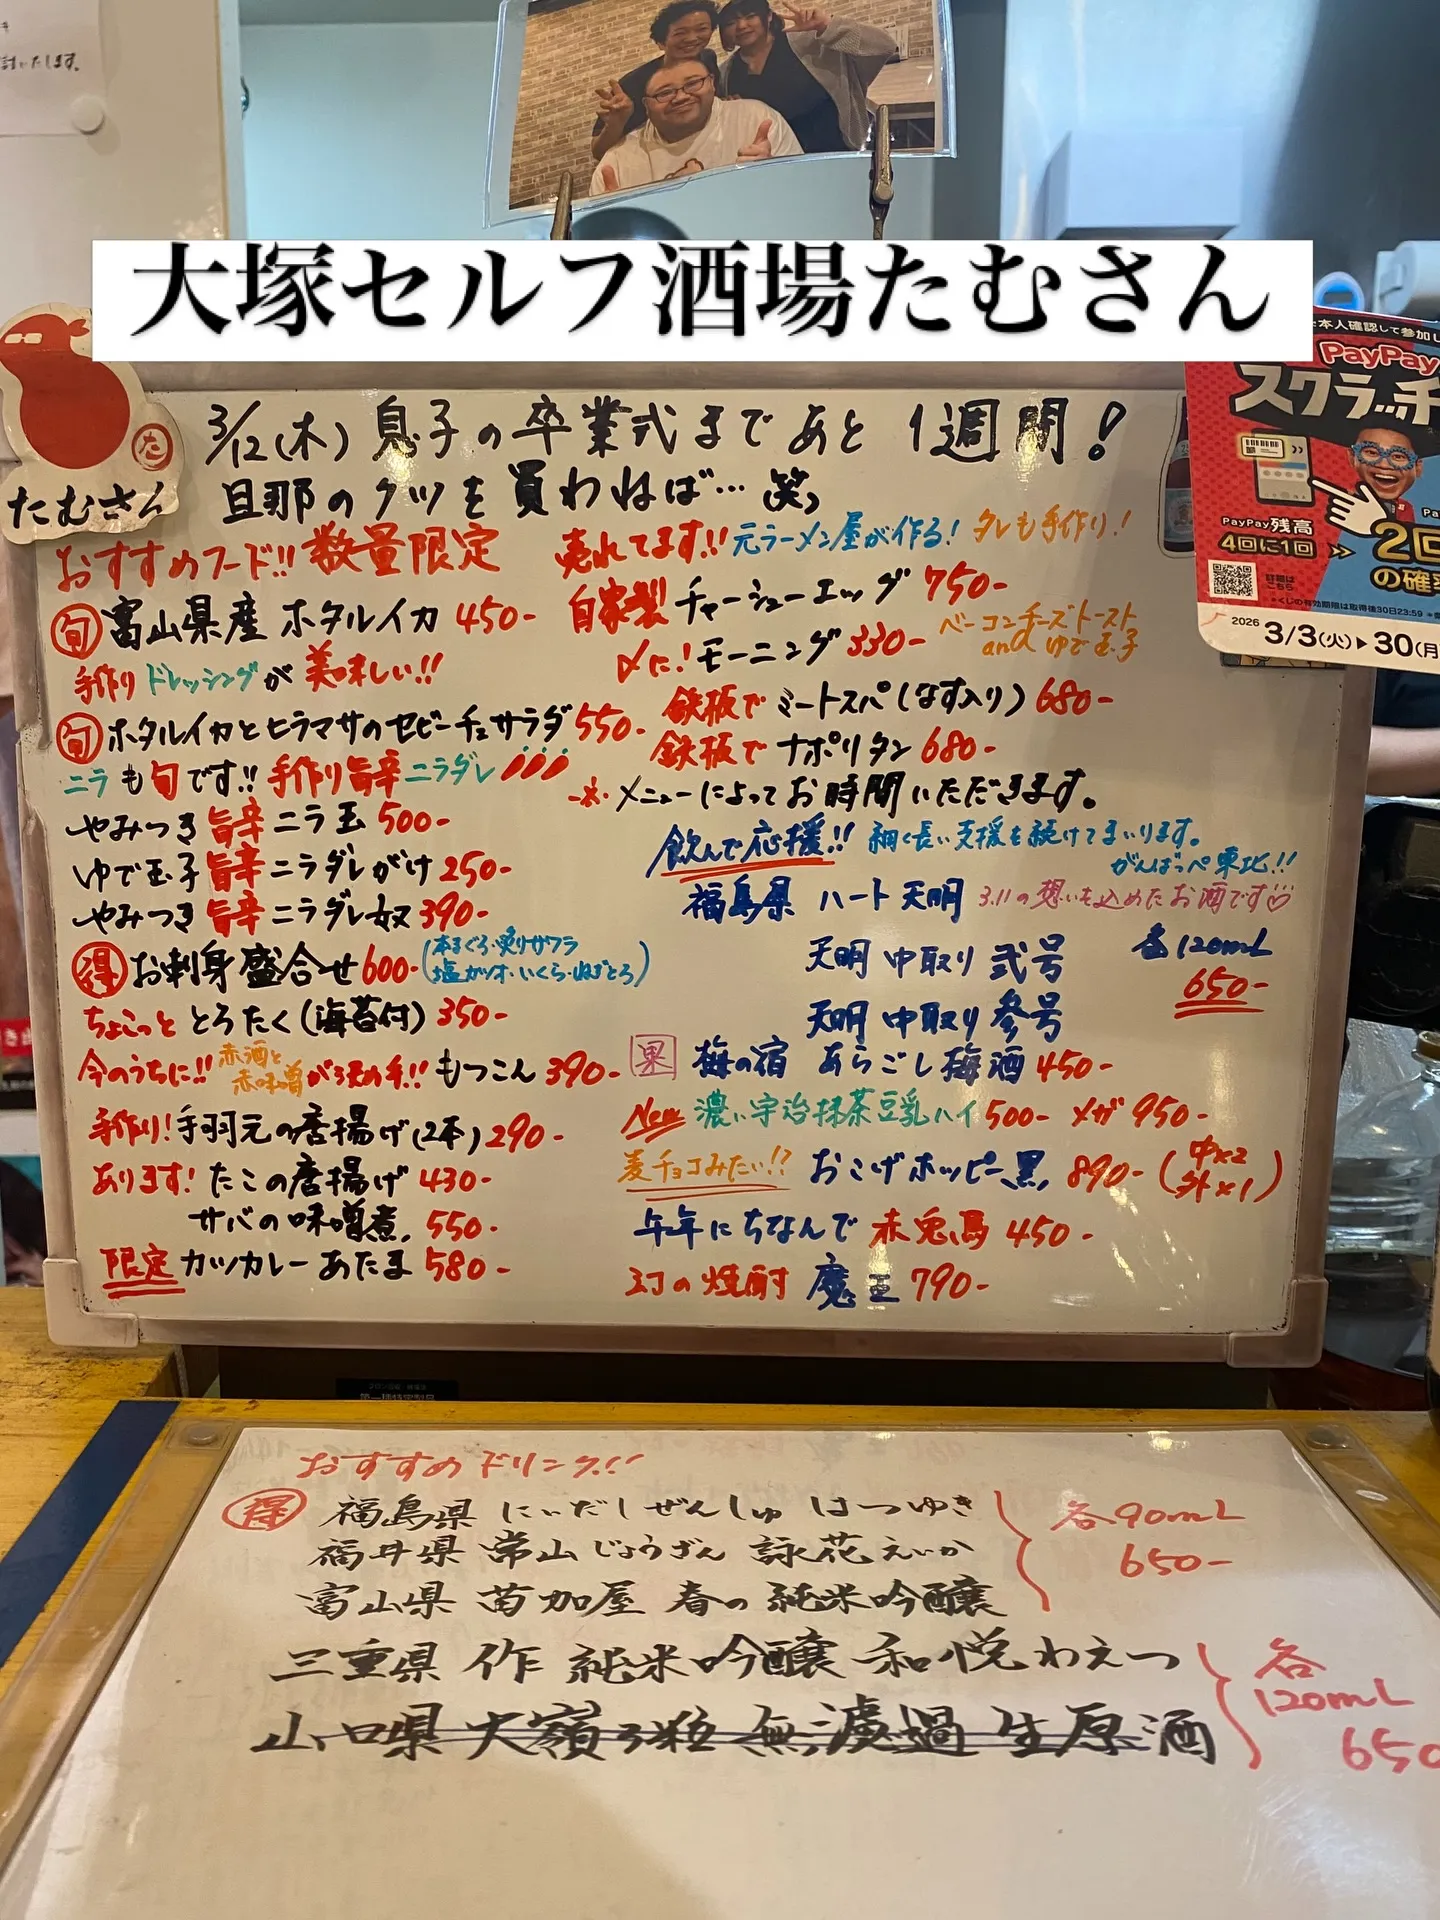 討いたします。
大塚セルフ酒場たむさん
た
たむさん
本人確認して参加し
PayPay
スクラッチ
PayPay残高
4回に1回
2回
の確率
詳細は
こちら
くじの有効期限は取得後30日23:59
2026 3/3(火)▶30(月)
3/12(木) 息子の卒業式まであと1週間!
旦那のクツを買わねば…笑
おすすめフード!! 数量限定
旬 富山県産 ホタルイカ 450-
手作りドレッシングが美味しい!!
旬 ホタルイカとヒラマサのセビーチェサラダ 550-
ニラも旬です!! 手作り旨辛ニラダレ
やみつき旨辛ニラ玉 500-
ゆで玉子旨辛ニラダレがけ 250-
やみつき旨辛ニラダレ奴 390-
得 お刺身盛合せ 600-(本まぐろ・炙りサワラ
塩カツオ・いくら・ねぎとろ)
ちょこっと とろたく(海苔付) 350-
今のうちに!! 赤酒と赤味噌が決め手!! もつこん 390-
手作り! 手羽元の唐揚げ(2本) 290-
あります! たこの唐揚げ 430-
サバの味噌煮 550-
限定 カツカレーあたま 580-
売れてます!! 元ラーメン屋が作る! タレも手作り!
自家製 チャーシューエッグ 750-
〆に! モーニング 330- ベーコンチーズトースト
and ゆで玉子
鉄板で ミートスパ(なす入り) 680-
鉄板で ナポリタン 680-
※メニューによってお時間いただきます。
飲んで応援!! 細く長い支援を続けてまいります。
がんばっぺ東北!!
福島県 ハート天明 3.11の想いを込めたお酒です♡
天明 中取り 弐号 各120mL
650-
天明 中取り 参号
果 梅の宿 あらごし梅酒 450-
New 濃い宇治抹茶豆乳ハイ 500- メガ 950-
麦チョコみたい!? おこげホッピー黒 890- (中×2
外×1)
午年にちなんで 赤兎馬 450-
幻の焼酎 魔王 790-
おすすめドリンク!!
得 福島県 にいだしぜんしゅ はつゆき 各90mL
福井県 常山じょうざん 詠花えいか 650-
富山県 苗加屋 春の純米吟醸
三重県 作 純米吟醸 和悦わえつ 各
120mL
山口県 大嶺3粒 無濾過生原酒 650